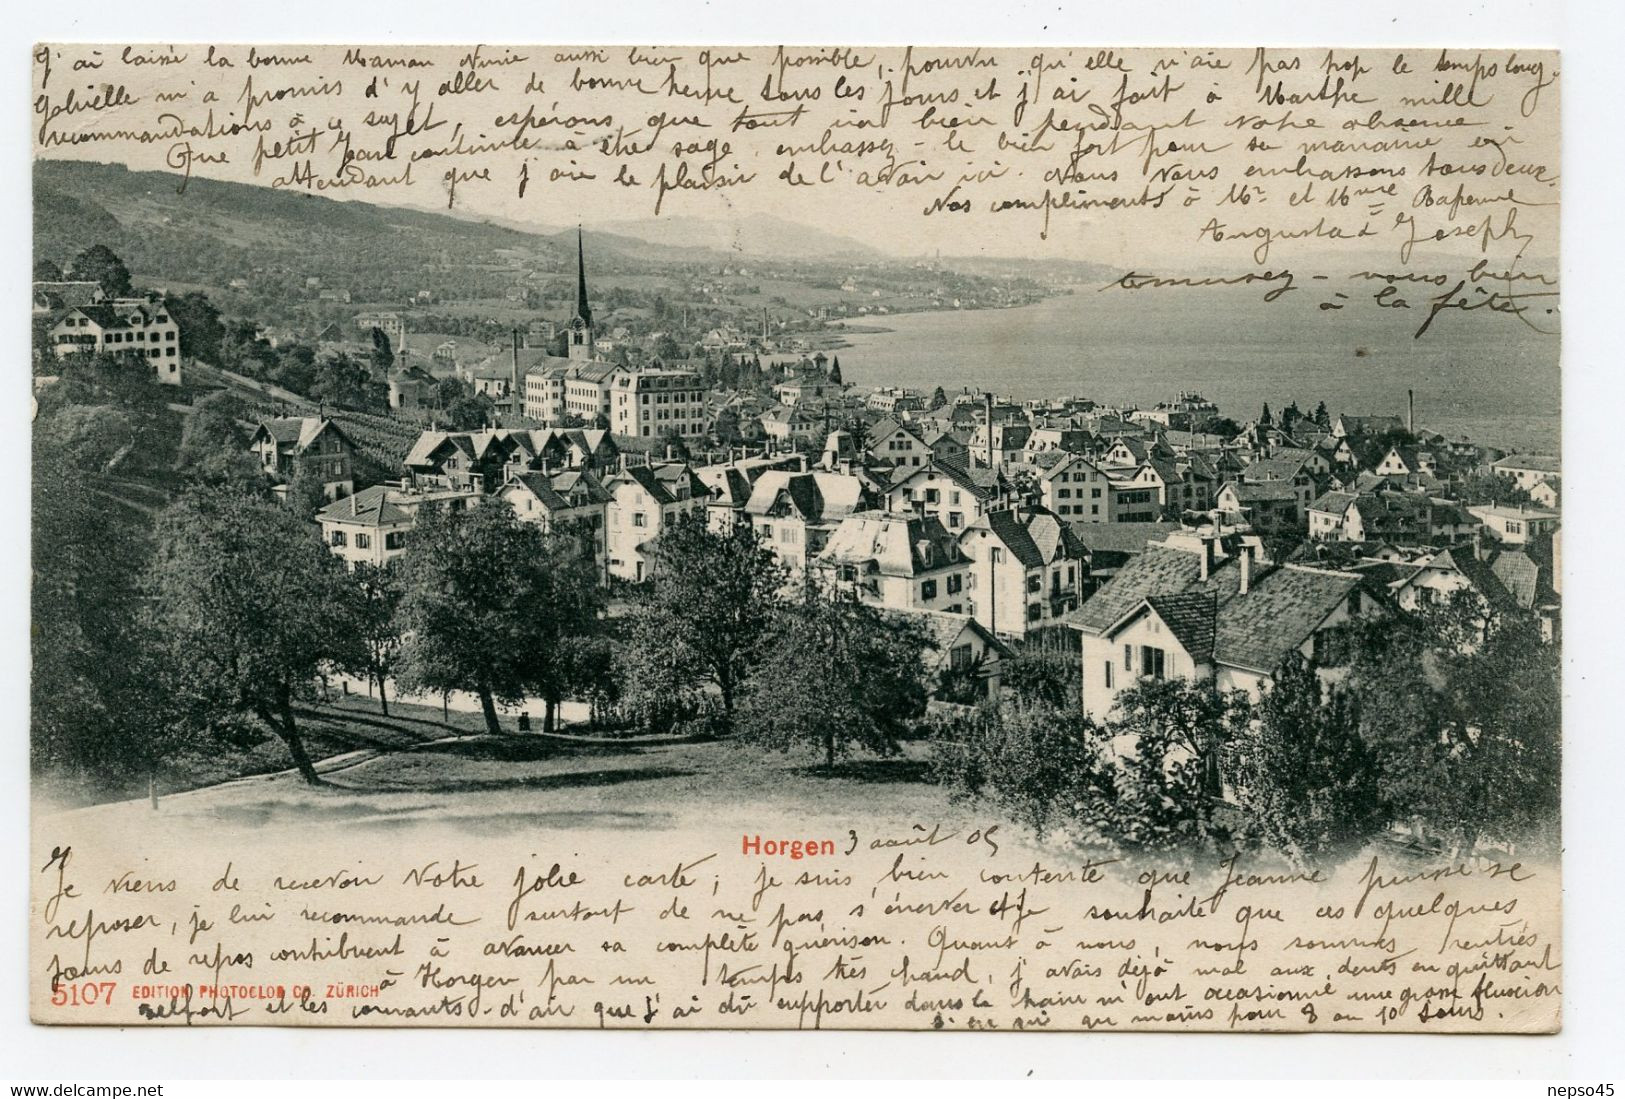 J'ai laissé la bonne Maman Ninie aussi bien que possible, pourvu qu'elle n'aie pas trop le temps long.
Gabrielle m'a promis d'y aller de bonne heure tous les jours et j'ai fait à Marthe mille
recommandations à ce sujet, espérons que tout ira bien pendant notre absence
Que petit Jean continue à être sage, embrassez-le bien fort pour sa marraine en
attendant que j'aie le plaisir de l'avoir ici. Nous vous embrassons tous deux.
Nos compliments à Mr et Mme
Augusta & Joseph
amusez-vous bien
à la fête.
Horgen 3 août 05
Je viens de recevoir votre jolie carte; je suis bien contente que Jeanne puisse se
reposer, je lui recommande surtout de ne pas s'énerver et je souhaite que ces quelques
jours de repos contribuent à avancer sa complète guérison. Quant à nous, nous sommes rentrés
à Horgen par un temps très chaud, j'avais déjà mal aux dents en quittant
5107 EDITION PHOTOGLOB CO. ZÜRICH
Belfort et les courants-d'air que j'ai dû supporter dans le train m'ont occasionné une grosse fluxion
j'en ai au moins pour 8 ou 10 jours.
nepso45